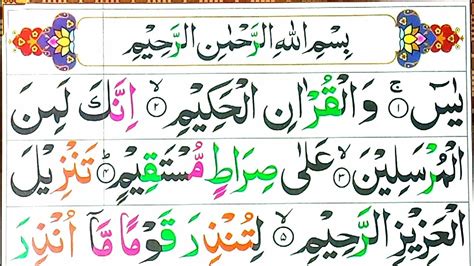 بِسْمِ اللهِ الرَّحْمٰنِ الرَّحِيْمِ
يٰسٓ ۚ‏﴿۱﴾ وَالْقُرْاٰنِ الْحَكِيْمِ ۙ‏﴿۲﴾ اِنَّكَ لَمِنَ
الْمُرْسَلِيْنَ ۙ‏﴿۳﴾ عَلٰى صِرَاطٍ مُّسْتَقِيْمٍ ؕ‏﴿۴﴾ تَنْزِيْلَ
الْعَزِيْزِ الرَّحِيْمِ ۙ‏﴿۵﴾ لِتُنْذِرَ قَوْمًا مَّاۤ اُنْذِرَ